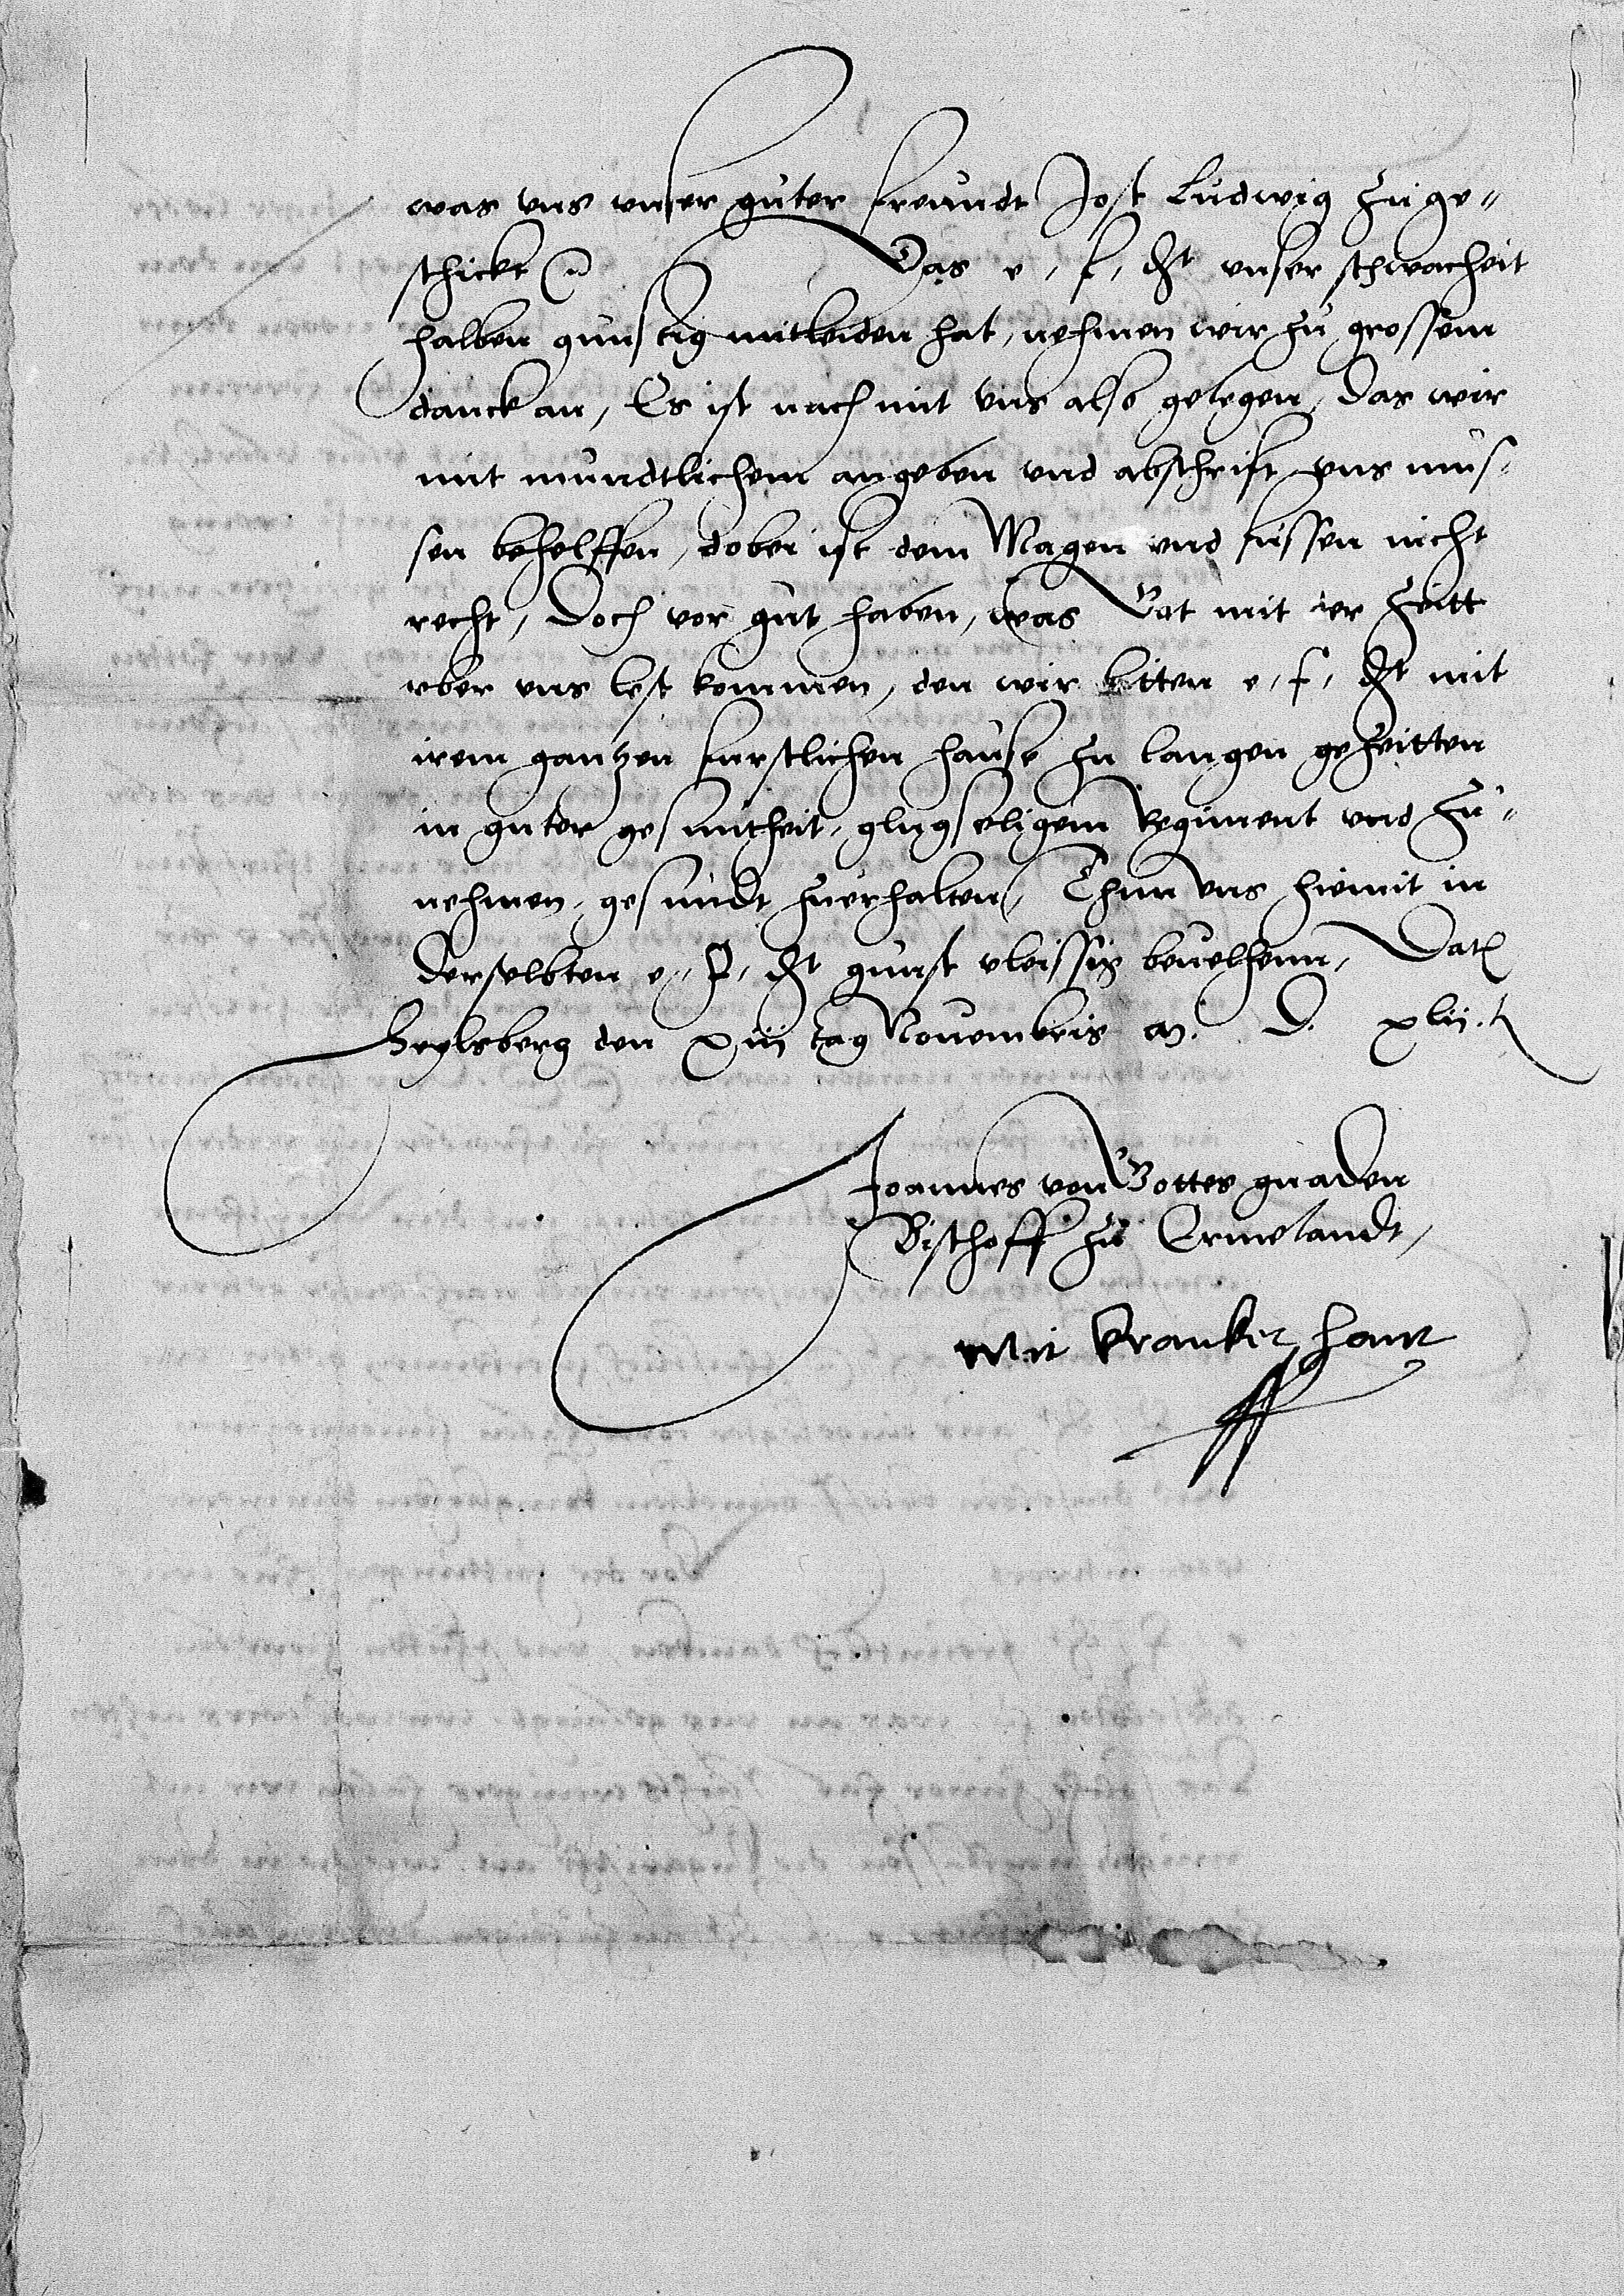 was vns vnser guter freundt Jost Ludwig zu ge-
schickt Das e, f, dt vnser schwacheit
halben gunstig mitleiden hat, nehmen wir zu grossem
danck an, Es ist nach mit vns also gelegen, das wir
mit mundtlichem angeben vnd abschrift vns mus-
sen behelffen, dobei ist dem Magen vnd fussen nicht
recht, Doch vor gut haben, was Got mit der zeitt
vber vns lest kommen, den wir bitten e, f, dt mit
irem gantzen furstlichen hause zu langen gezeitten
in guter gesuntheit, glugseligem Regiment vnd zu-
nehmen, gesundt zuerhalten, Thun vns hiemit in
derselbten e, f, dt gunst vleissig beuelhenn, Dat
Heylsberg den xiii tag Nouembris M. D. xlii.
Joannes von Gottes gnaden
Bischoff zu Ermelandt,
Mit kranker hant